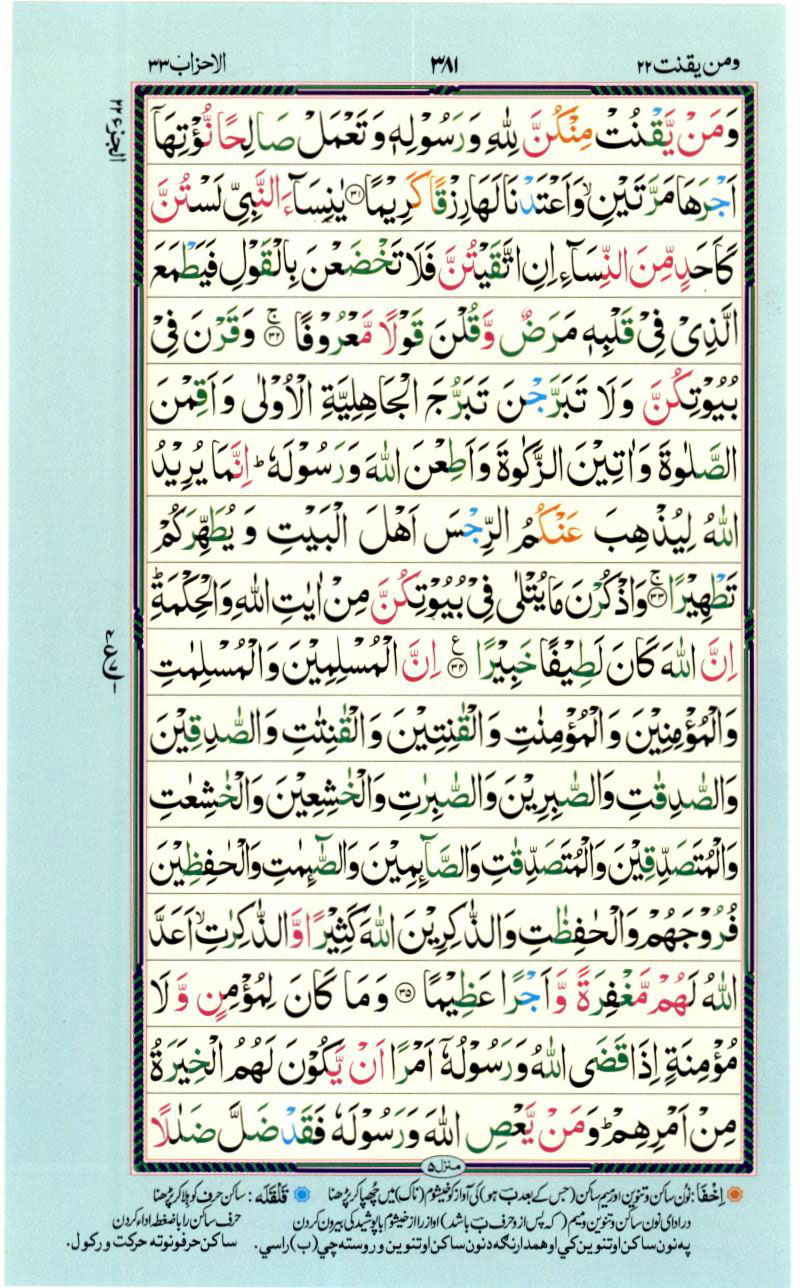 ومن یقنت ۲۲ ۳۸۱ الاحزاب ۳۳
الجزء ۲۲
وَمَنْ يَّقْنُتْ مِنْكُنَّ لِلّٰهِ وَرَسُوْلِهٖ وَتَعْمَلْ صَالِحًا نُّؤْتِهَاۤ
اَجْرَهَا مَرَّتَيْنِ ۙ وَاَعْتَدْنَا لَهَا رِزْقًا كَرِيْمًا ۝۳۱ يٰنِسَآءَ النَّبِىِّ لَسْتُنَّ
كَاَحَدٍ مِّنَ النِّسَآءِ اِنِ اتَّقَيْتُنَّ فَلَا تَخْضَعْنَ بِالْقَوْلِ فَيَطْمَعَ
الَّذِىْ فِىْ قَلْبِهٖ مَرَضٌ وَّقُلْنَ قَوْلًا مَّعْرُوْفًا ۝۳۲ ۚ وَقَرْنَ فِىْ
بُيُوْتِكُنَّ وَلَا تَبَرَّجْنَ تَبَرُّجَ الْجَاهِلِيَّةِ الْاُوْلٰى وَاَقِمْنَ
الصَّلٰوةَ وَاٰتِيْنَ الزَّكٰوةَ وَاَطِعْنَ اللّٰهَ وَرَسُوْلَهٗ ؕ اِنَّمَا يُرِيْدُ
اللّٰهُ لِيُذْهِبَ عَنْكُمُ الرِّجْسَ اَهْلَ الْبَيْتِ وَيُطَهِّرَكُمْ
تَطْهِيْرًا ۝۳۳ ۚ وَاذْكُرْنَ مَا يُتْلٰى فِىْ بُيُوْتِكُنَّ مِنْ اٰيٰتِ اللّٰهِ وَالْحِكْمَةِ ؕ
اِنَّ اللّٰهَ كَانَ لَطِيْفًا خَبِيْرًا ۝۳۴ ع اِنَّ الْمُسْلِمِيْنَ وَالْمُسْلِمٰتِ
وَالْمُؤْمِنِيْنَ وَالْمُؤْمِنٰتِ وَالْقٰنِتِيْنَ وَالْقٰنِتٰتِ وَالصّٰدِقِيْنَ
وَالصّٰدِقٰتِ وَالصّٰبِرِيْنَ وَالصّٰبِرٰتِ وَالْخٰشِعِيْنَ وَالْخٰشِعٰتِ
وَالْمُتَصَدِّقِيْنَ وَالْمُتَصَدِّقٰتِ وَالصَّآئِمِيْنَ وَالصّٰٓئِمٰتِ وَالْحٰفِظِيْنَ
فُرُوْجَهُمْ وَالْحٰفِظٰتِ وَالذّٰكِرِيْنَ اللّٰهَ كَثِيْرًا وَّالذّٰكِرٰتِ ۙ اَعَدَّ
اللّٰهُ لَهُمْ مَّغْفِرَةً وَّاَجْرًا عَظِيْمًا ۝۳۵ وَمَا كَانَ لِمُؤْمِنٍ وَّلَا
مُؤْمِنَةٍ اِذَا قَضَى اللّٰهُ وَرَسُوْلُهٗۤ اَمْرًا اَنْ يَّكُوْنَ لَهُمُ الْخِيَرَةُ
مِنْ اَمْرِهِمْ ؕ وَمَنْ يَّعْصِ اللّٰهَ وَرَسُوْلَهٗ فَقَدْ ضَلَّ ضَلٰلًا
منزل ۵
اِخفَا: نون ساکن و تنوین اور میم ساکن (جس کے بعد ب ہو) کی آواز کو خیشوم (ناک) میں چھپا کر پڑھنا قَلقَلَه: ساکن حرف کو ہلا کر پڑھنا
در ادای نون ساکن و تنوین و میم (که پس از و حرف ب باشد) آواز را از خیشوم با پوشیدگی بیرون کردن حرف ساکن را با ضغطه اداء کردن
په نون ساکن او تنوین کي او همدارنګه د نون ساکن او تنوین وروسته چي (ب) راسي. ساکن حرفونو ته حرکت ورکول.